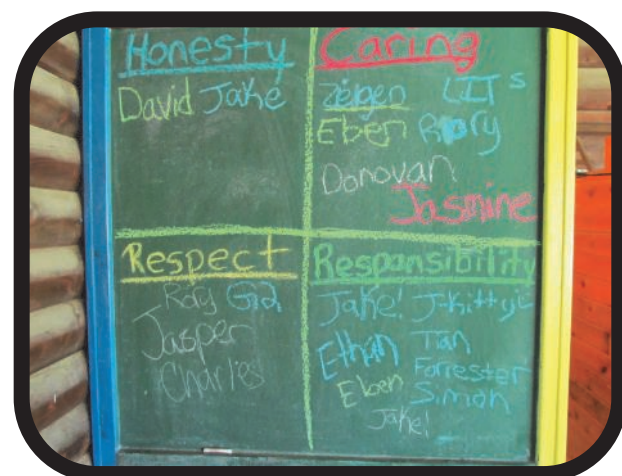 Honesty
David Jake
Caring
LIT s
Eben Rory
Donovan
Jasmine
Respect
Rory
Jasper
Charles
Responsibility
Jake! J-Kitty
Ethan Tian
Forrester
Eben Simon
Jake!